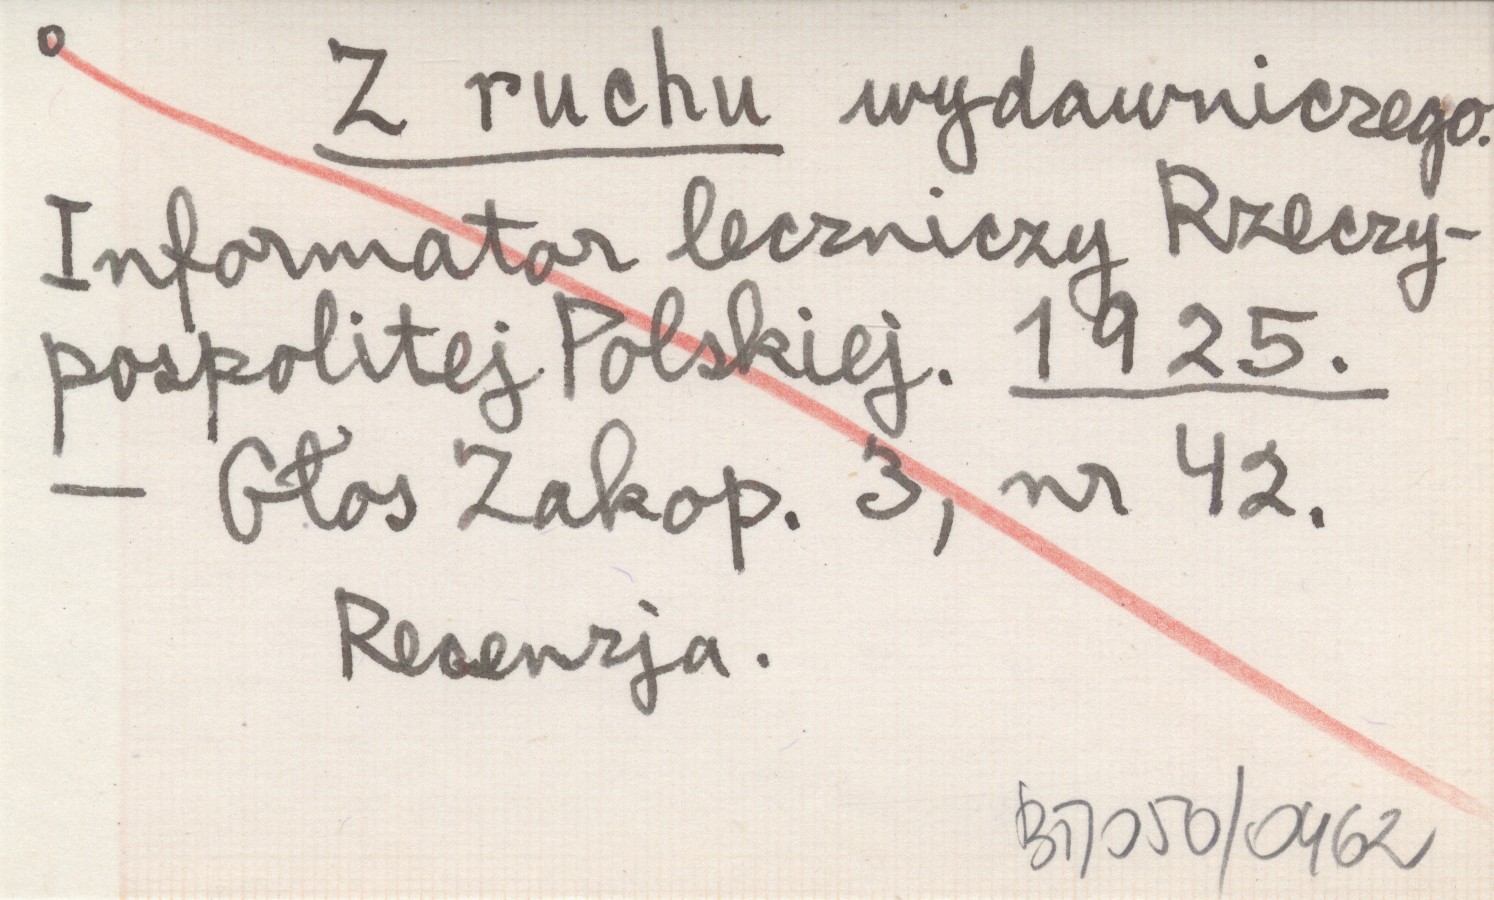 Z ruchu wydawniczego.
Informator leczniczy Rzeczy-
pospolitej Polskiej. 1925.
— Głos Zakop. 3, nr 42.
Recenzja.
050/0462